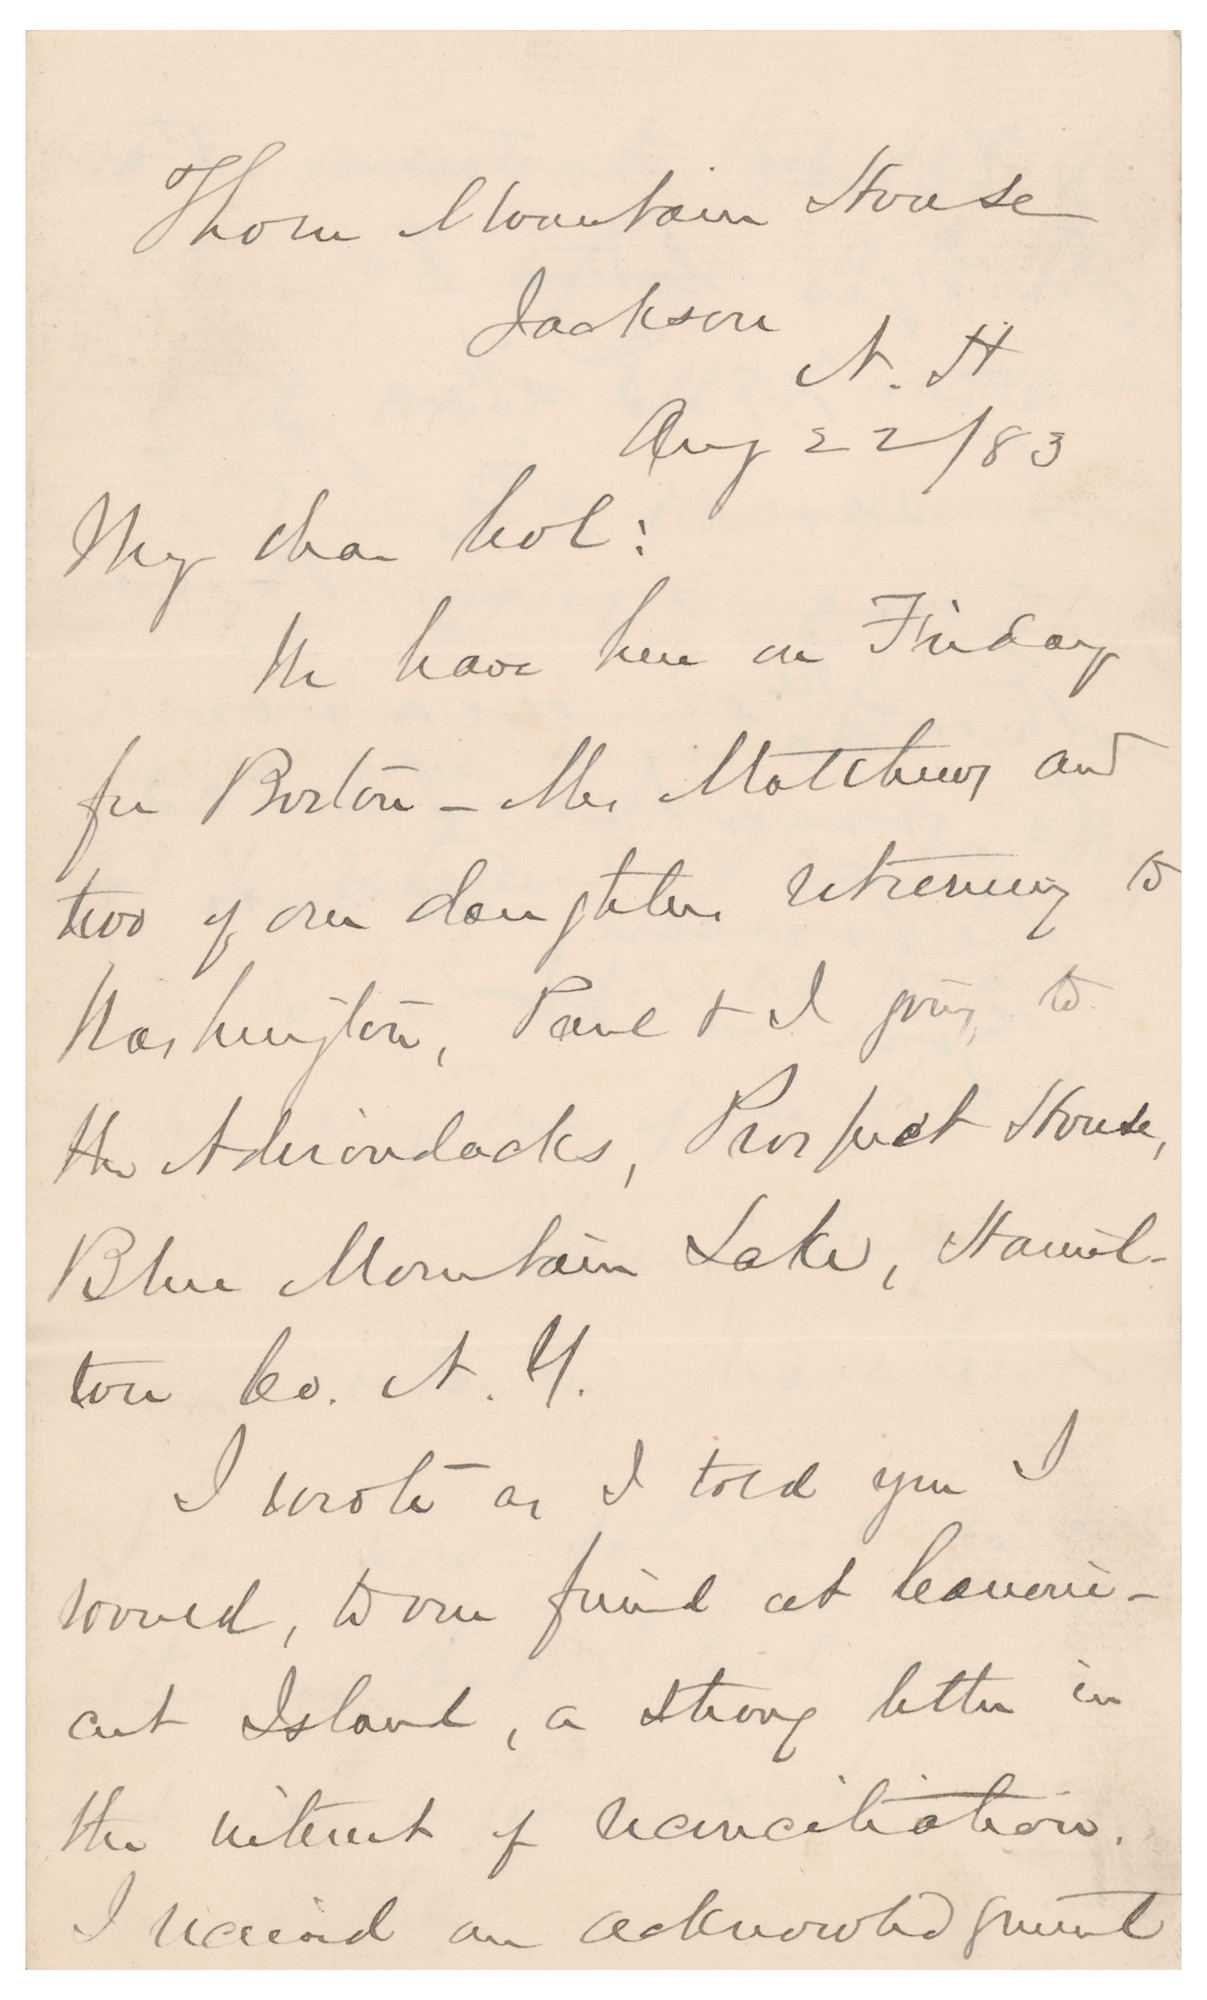 Thorn Mountain House
Jackson
N. H
Aug 22/83
My dear Col:
We leave here on Friday
for Boston – Mrs Matthews and
two of our daughters returning to
Washington, Paul & I going to
the Adirondacks, Prospect House,
Blue Mountain Lake, Hamil-
ton Co. N. Y.
I wrote as I told you I
would, to our friend at Canoni-
cut Island, a strong letter in
the interest of reconciliation.
I received an acknowledgment